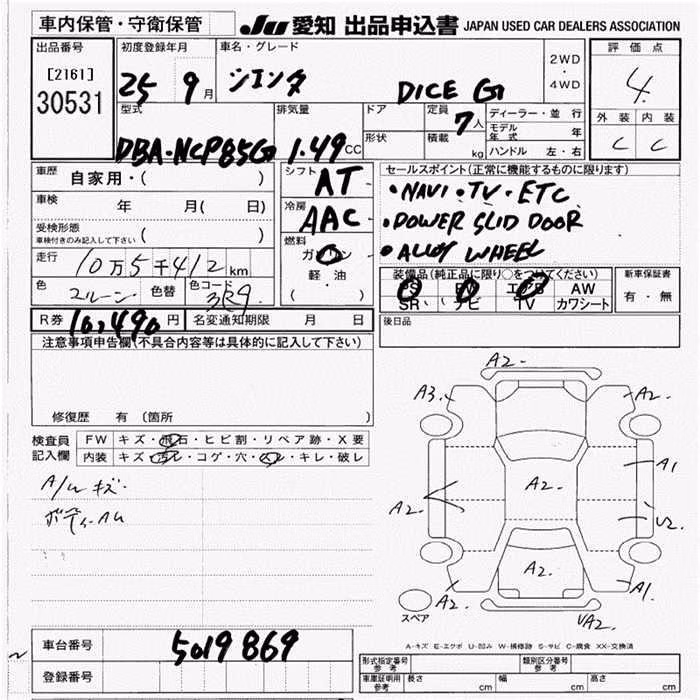 車内保管・守衛保管 JU 愛知 出品申込書 JAPAN USED CAR DEALERS ASSOCIATION
出品番号 初度登録年月 車名・グレード 2WD・4WD 評価点
[2161] 25 9月 シエンタ DICE G 4
30531
型式 排気量 ドア 定員 7人 ディーラー・並行 外装 内装
DBA・NCP85G 1.49CC 形状 積載 kg モデル年式 年 C C
ハンドル 左・右
車歴 自家用・( ) シフト AT セールスポイント(正常に機能するものに限ります)
車検 年 月( 日) 冷房 AAC ・NAVI・TV・ETC
受検形態 ・POWER SLID DOOR
車検付きのみ記入して下さい ( ) 燃料 ガソリン ・ALLOY WHEEL
走行 10万5千412km 軽油
色 色替 色コード 3R9 ( ) 装備品(純正品に限り○をつけてください) 新車保証書
PS PW エアB AW 有・無
SR ナビ TV カワシート
R券 10,490円 名変通知期限 月 日 後日品
注意事項申告欄(不具合内容等は具体的に記入して下さい)
修復歴 有 (箇所 )
検査員記入欄 FW キズ・飛石・ヒビ割・リペア跡・X要
内装 キズ・汚レ・コゲ・穴・シレ・キレ・破レ
A/W キズ
A2.
A3. A2.
A1
A2. A2.
U2.
A2.
A2. A1.
スペア
A-キズ E-エクボ U-凹み W-補修跡 S-サビ C-腐食 XX-交換済
車台番号 5019869
登録番号
形式指定番号 参考 類別区分番号 参考
車庫証明用 参考 長さ cm 幅 cm 高さ cm